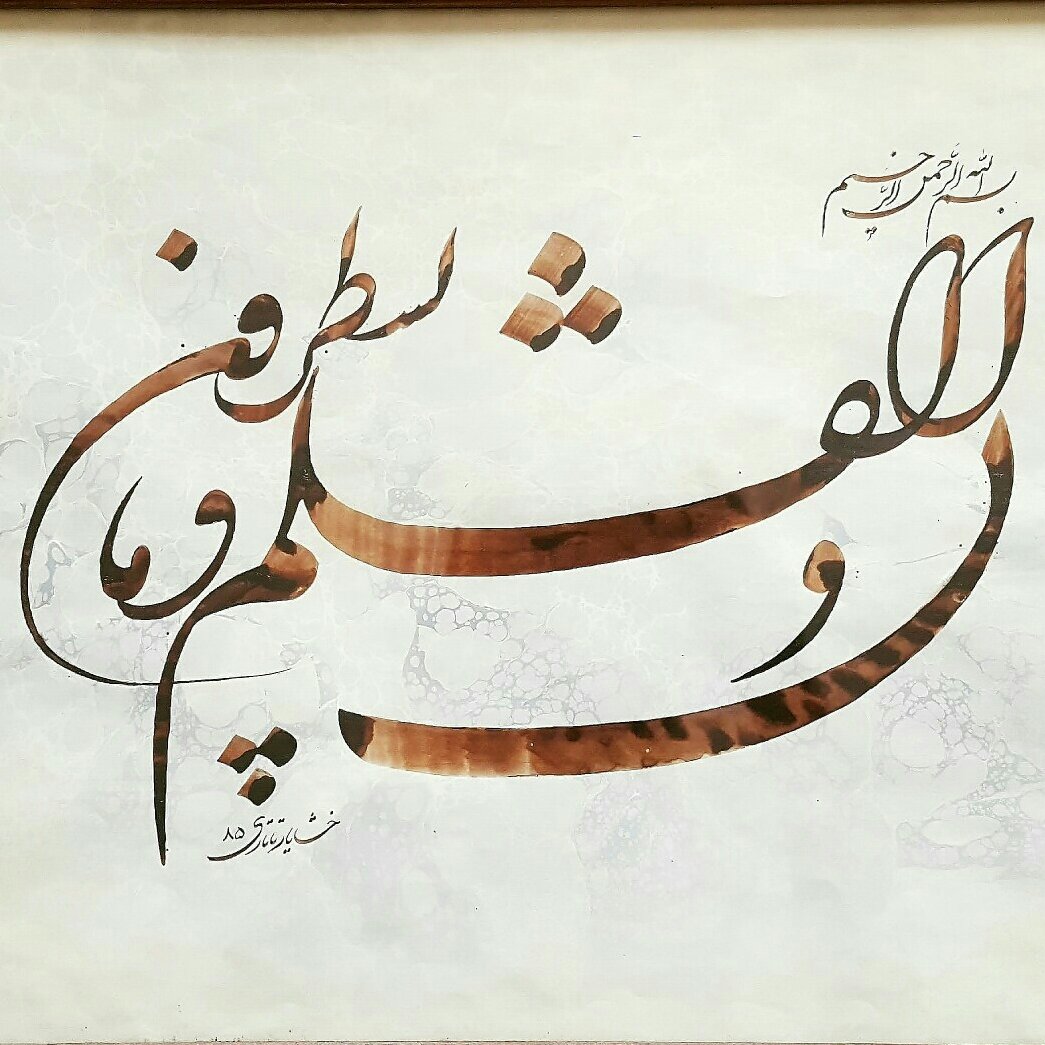 بسم الله الرحمن الرحیم
ن و القلم و ما یسطرون
خشایار تاتاری ۸۵